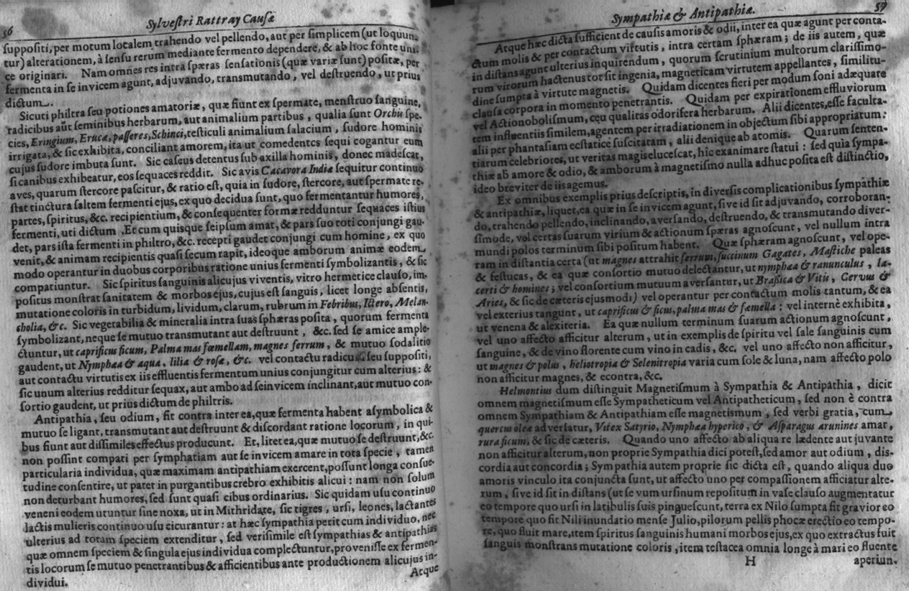 56 Sylvestri Rattray Causæ
suppositi, per motum localem trahendo vel pellendo, aut per simplicem (ut loquun-
tur) alterationem, à sensu rerum mediante fermento dependere, & ab hoc fonte uni-
ce originari. Nam omnes res intra sphæras sensationis (quæ variæ sunt) positæ, per
fermenta in se invicem agunt, adjuvando, transmutando, vel destruendo, ut prius
dictum.
Sicuti philtra seu potiones amatoriæ, quæ fiunt ex spermate, menstruo sanguine,
radicibus aut seminibus herbarum, aut animalium partibus, qualia sunt Orchu spe-
cies, Eringium, Eruca, passeres, Schinci, testiculi animalium salacium, sudore hominis
irrigata, & sic exhibita, conciliant amorem, ita ut comedentes sequi cogantur eum
cujus sudore imbuta sunt. Sic caseus detentus sub axilla hominis, donec madescat,
si canibus exhibeatur, eos sequaces reddit. Sic avis Cacavora Indiæ sequitur continuo
aves, quarum stercore pascitur, & ratio est, quia in sudore, stercore, aut spermate re-
stat tinctura saltem fermenti ejus, ex quo decidua sunt, quo fermentantur humores,
partes, spiritus, &c. recipientium, & consequenter formæ redduntur sequaces istius
fermenti, uti dictum. Et cum quisque seipsum amat, & pars suo toti conjungi gau-
det, pars ista fermenti in philtro, &c. recepti gaudet conjungi cum homine, ex quo
venit, & animam recipientis quasi secum rapit, ideoque amborum animæ eodem
modo operantur in duobus corporibus ratione unius fermenti symbolizantis, & sic
compatiuntur. Sic spiritus sanguinis alicujus viventis, vitro hermetice clauso, im-
positus monstrat sanitatem & morbos ejus, cujus est sanguis, licet longe absentis,
mutatione coloris in turbidum, lividum, clarum, rubrum in Febribus, Ictero, Melan-
cholia, &c. Sic vegetabilia & mineralia intra suas sphæras posita, quorum fermenta
symbolizant, neque se mutuo transmutant aut destruunt, &c. sed se amice ample-
ctuntur, ut caprificus ficum, Palma mas fœmellam, magnes ferrum, & mutuo sodalitio
gaudent, ut Nymphæa & aqua, lilia & rosæ, &c. vel contactu radicum seu suppositi,
aut contactu virtutis ex iis effluentis fermentum unius conjungitur cum alterius: &
sic unum alterius redditur sequax, aut ambo ad se invicem inclinant, aut mutuo con-
sortio gaudent, ut prius dictum de philtris.
Antipathia, seu odium, fit contra inter ea, quæ fermenta habent asymbolica &
mutuo se ligant, transmutant aut destruunt & discordant ratione locorum, in qui-
bus fiunt aut dissimiles effectus producunt. Et, licet ea, quæ mutuo se destruunt, &c.
non possint compari per symphatiam aut se invicem amare in tota specie, tamen
particularia individua, quæ maximam antipathiam exercent, possunt longa consue-
tudine consentire, ut patet in purgantibus crebro exhibitis alicui: nam non solum
non deturbant humores, sed sunt quasi cibus ordinarius. Sic quidam usu continuo
veneni eodem utuntur sine noxa, ut in Mithridate, sic tigres, ursi, leones, lactantes
lactis mulieris continuo usu cicurantur: at hæc sympathia perit cum individuo, nec
ulterius ad totam speciem extenditur, sed verisimile est sympathias & antipathias
quæ omnem speciem & singula ejus individua complectuntur, provenisse ex fermen-
tis locorum se mutuo penetrantibus & afficientibus ante productionem alicujus in-
dividui.
Atque
Sympathiæ & Antipathiæ. 57
Atque hæc dicta sufficient de causis amoris & odii, inter ea quæ agunt per conta-
ctum molis & per contactum virtutis, intra certam sphæram; de iis autem, quæ
in distans agunt ulterius inquirendum, quorum scrutinium multorum clarissimo-
rum virorum hactenus torsit ingenia, magneticam virtutem appellantes, similitu-
dine sumpta à virtute magnetis. Quidam dicentes fieri per modum soni adæquare
clausa corpora in momento penetrantis. Quidam per expirationem effluviorum
vel Actionobolismum, ceu qualitas odorifera herbarum. Alii dicentes, esse faculta-
tem influentiis similem, agentem per irradiationem in objectum sibi appropriatum:
alii per phantasiam ecstatice suscitatam, alii denique ab atomis. Quarum senten-
tiarum celebriores, ut veritas magis elucescat, hic examinare statui: sed quia sympa-
thiæ ab amore & odio, & amborum à magnetismo nulla adhuc posita est distinctio,
ideo breviter de iis agemus.
Ex omnibus exemplis prius descriptis, in diversis complicationibus sympathiæ
& antipathiæ, liquet, ea quæ in se invicem agunt, sive id sit adjuvando, corroboran-
do, trahendo pellendo, inclinando, aversando, destruendo, & transmutando diver-
simode, vel certas suarum virium & actionum sphæras agnoscunt, vel nullum intra
mundi polos terminum sibi positum habent. Quæ sphæram agnoscunt, vel ope-
ram in distantia certa (ut magnes attrahit ferrum, succinum Gagates, Mastiche paleas
& festucas, & ea quæ consortio mutuo delectantur, ut nymphæa & ranunculus, la-
certi & homines; vel consortium mutuum aversantur, ut Brassica & Vitis, Cervus &
Aries, & sic de cæteris ejusmodi) vel operantur per contactum molis tantum, & ea
vel exterius tangunt, ut caprificus & ficus, palma mas & fæmella: vel interne exhibita,
ut venena & alexiteria. Ea quæ nullum terminum suarum actionum agnoscunt,
vel uno affecto afficitur alterum, ut in exemplis de spiritu vel sale sanguinis cum
sanguine, & de vino florente cum vino in cadis, &c. vel uno affecto non afficitur,
ut magnes & polus, heliotropia & Selenitropia varia cum sole & luna, nam affecto polo
non afficitur magnes, & econtra, &c.
Helmontius dum distinguit Magnetismum à Sympathia & Antipathia, dicit
omnem magnetismum esse Sympatheticum vel Antipatheticum, sed non è contra
omnem Sympathiam & Antipathiam esse magnetismum, sed verbi gratia, cum
quercus oleæ adversatur, Vitex Satyrio, Nymphæa hyperico, & Asparagus arunines amat,
ruta ficum, & sic de cæteris. Quando uno affecto ab aliqua re lædente aut juvante
non afficitur alterum, non proprie Sympathia dici potest, sed amor aut odium, dis-
cordia aut concordia; Sympathia autem proprie sic dicta est, quando aliqua duo
amoris vinculo ita conjuncta sunt, ut affecto uno per compassionem afficiatur alte-
rum, sive id sit in distans (ut sevum ursinum repositum in vase clauso augmentatur
eo tempore quo ursi in latibulis suis pinguescunt, terra ex Nilo sumpta fit gravior eo
tempore quo fit Nili inundatio mense Julio, pilorum pellis phocæ erectio eo tempo-
re, quo fluit mare, item spiritus sanguinis humani morbos ejus, ex quo extractus fuit
sanguis monstrans mutatione coloris, item testacea omnia longè à mari eo fluente
H aperiun-